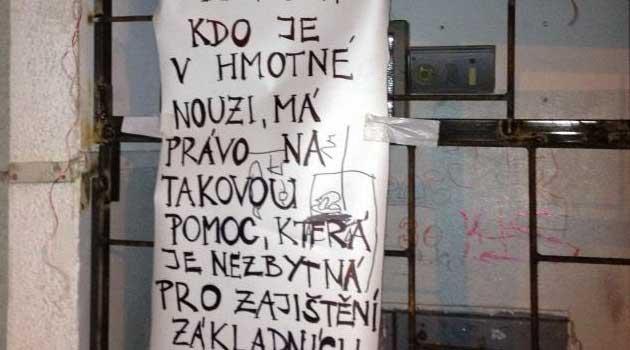 KDO JE
V HMOTNÉ
NOUZI, MÁ
PRÁVO NA
TAKOVOU
POMOC, KTERÁ
JE NEZBYTNÁ
PRO ZAJIŠTĚNÍ
ZÁKLADNÍCH